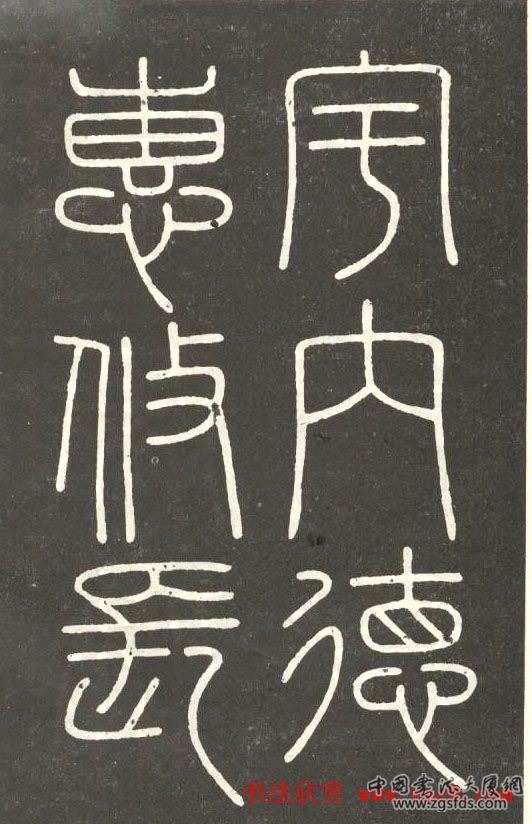 宇内德
惠攸長
书法欣赏 www.
中国书法大展网
www.zgsfds.com